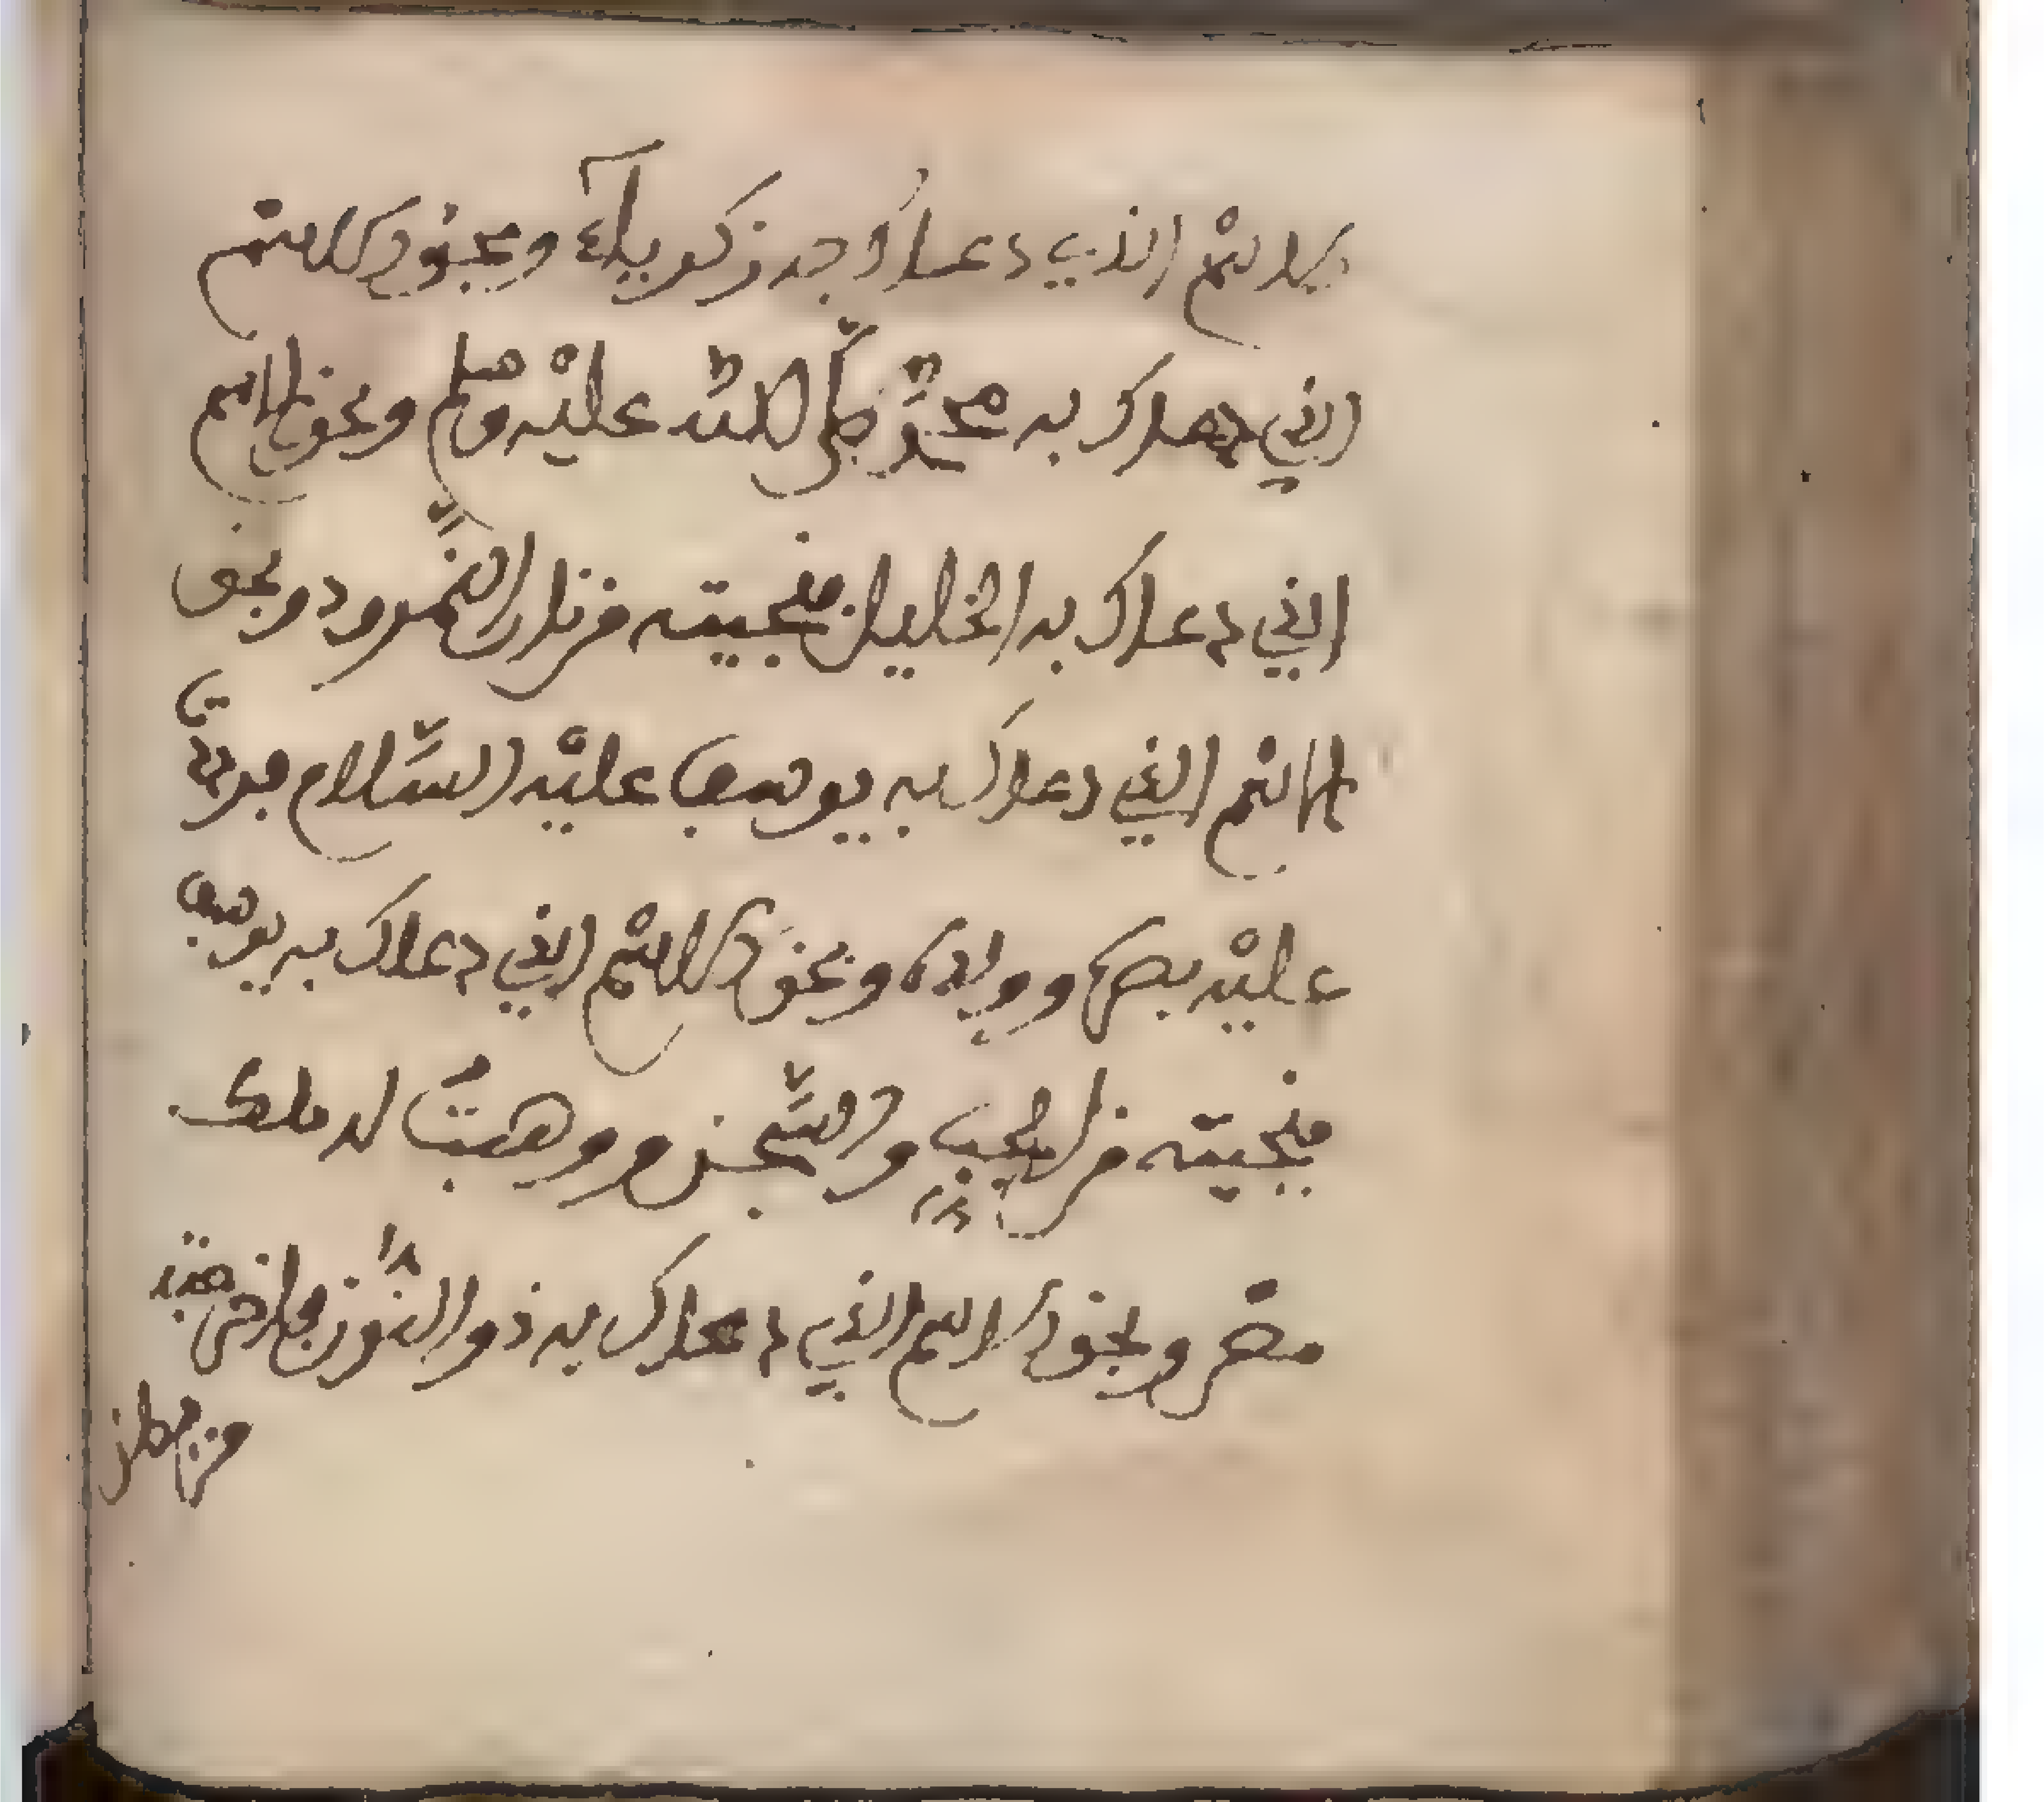 الاسم الذي دعا وجد زكرياء وبحق الاسم
الذي دعاك به محمد صلى الله عليه وسلم وبحق الاسم
الذي دعاك به الخليل فنجيته من نار النمرود وبحق
الاسم الذي دعاك به يوسف عليه السلام فرددت
عليه بصره وولده وبحق الاسم الذي دعاك به يوسف
فنجيته من الجب والسجن ووهبت له ملك
مصر وبحق الاسم الذي دعاك به ذوا النون
من بطن